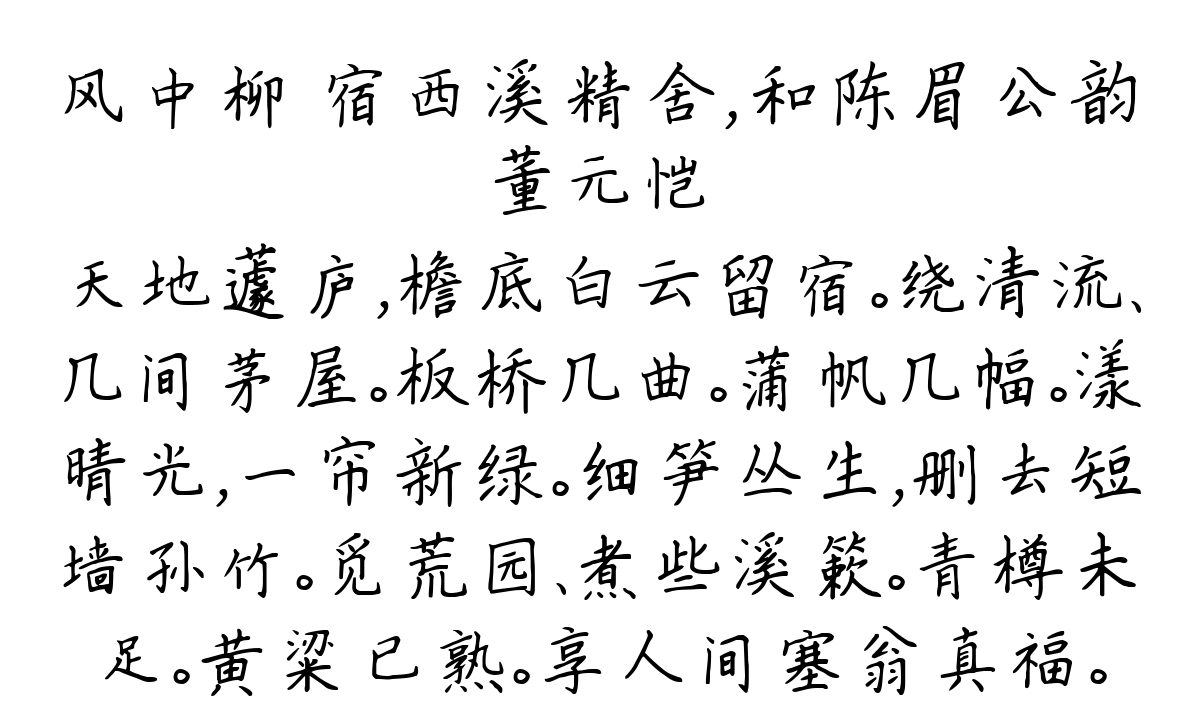 风中柳 宿西溪精舍,和陈眉公韵
董元恺
天地蘧庐,檐底白云留宿。绕清流、
几间茅屋。板桥几曲。蒲帆几幅。漾
晴光,一帘新绿。细笋丛生,删去短
墙孙竹。觅荒园、煮些溪簌。青樽未
足。黄粱已熟。享人间塞翁真福。